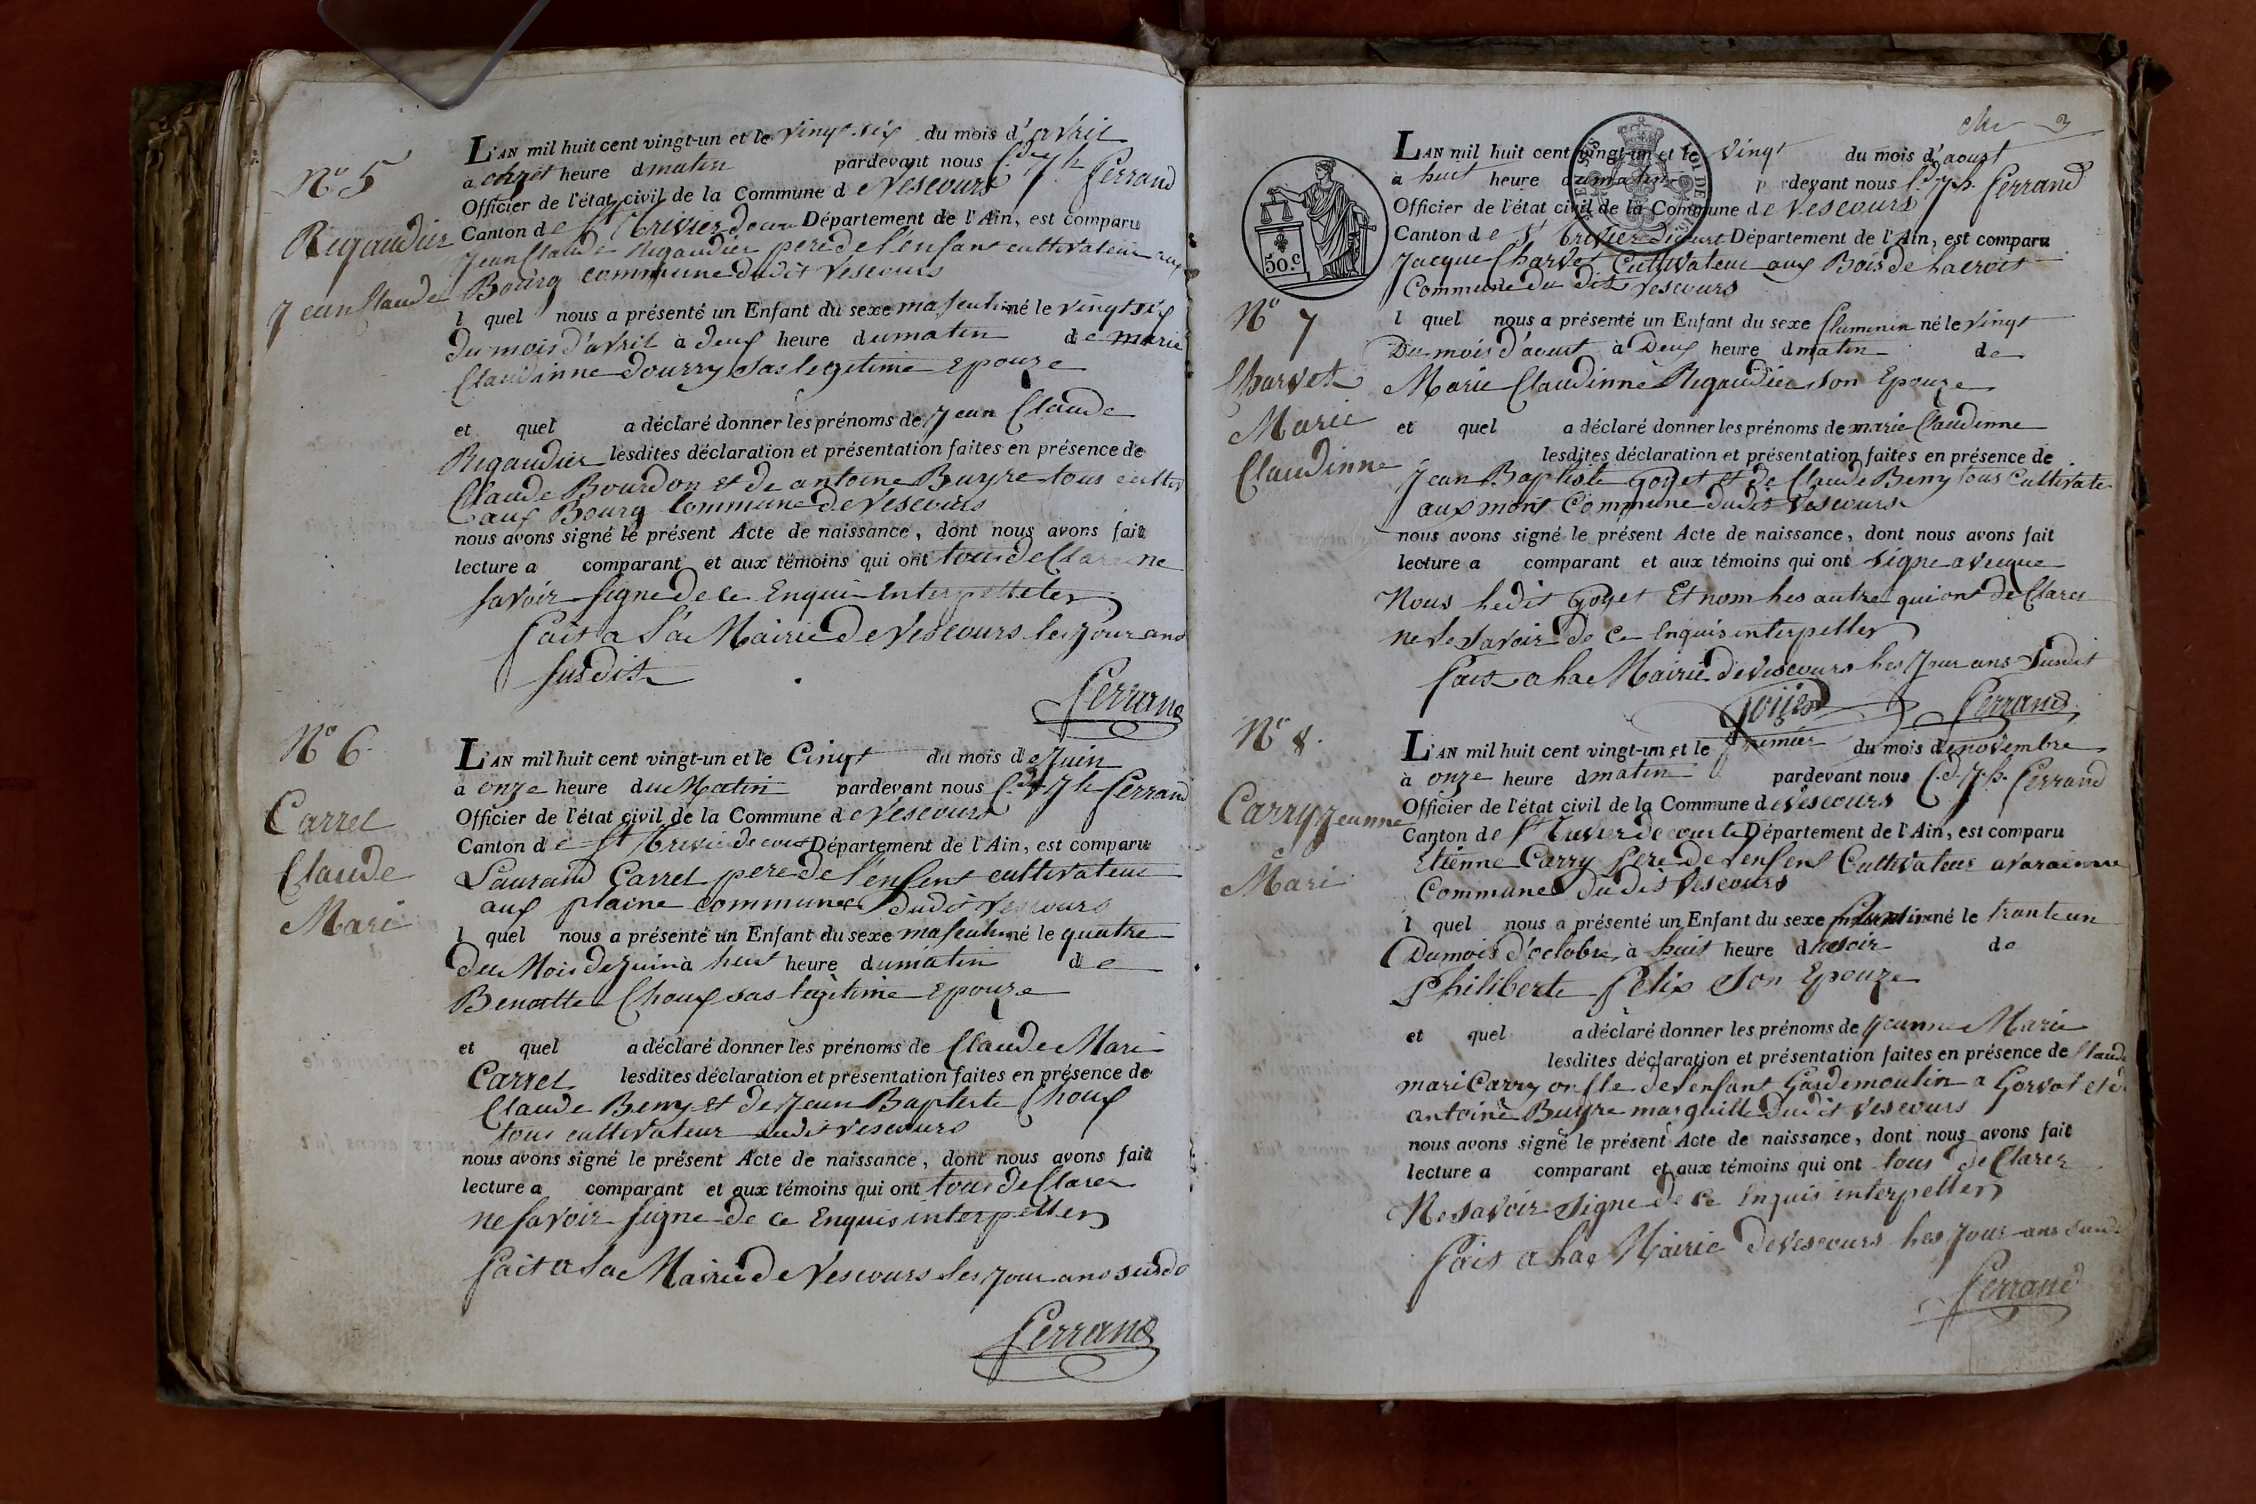 N° 5
Rigaudier
Jean Claude
L'AN mil huit cent vingt-un et le vingt six du mois d'avril
a onzet heure dmatin pardevant nous Cde Jh ferrand
Officier de l'état civil de la Commune de Vescours
Canton de St trivier de cour Département de l'Ain, est comparu
Jean Claude Rigaudier pere de l'enfant cultivateur aux
Bourg commune dudit Vescours
l quel nous a présenté un Enfant du sexe masculin né le vingt six
du mois d'avril à deux heure dumatin de marie
Claudinne dourry sas legetime Epouze
et quel a déclaré donner les prénoms de Jean Claude
Rigaudier lesdites déclaration et présentation faites en présence de
Claude Bourdon et de antoine Buyre tous cultiv
aux Bourg Commune de Vescours
nous avons signé le présent Acte de naissance, dont nous avons fait
lecture a comparant et aux témoins qui ont tous de Clare ne
savoir signe de ce Enqui Interpetteler
fait a Sa Mairie de Vescours les Jour ans
susdit
ferrand
N° 6
Carrel
Claude
Mari
L'AN mil huit cent vingt-un et le Cinqt du mois de Juin
à onze heure du Matin pardevant nous Cde Jh ferrand
Officier de l'état civil de la Commune de Vescours
Canton de St trivie de cour Département de l'Ain, est comparu
Laurand Carrel pere de l'enfent cultivateur
aux plaine commune dudit Vescours
l quel nous a présenté un Enfant du sexe masculin né le quatre
du Mois de Juin à heut heure dumatin de
Benoitte Choux sas legitime Epouze
et quel a déclaré donner les prénoms de Claude Mari
Carrel lesdites déclaration et présentation faites en présence de
Claude Beny et de Jean Bapteste Choux
tous cultivateur dudit Vescours
nous avons signé le présent Acte de naissance, dont nous avons fait
lecture a comparant et aux témoins qui ont tous de Clarer
ne savoir signe de ce Enquis interpeller
fait a Sa Mairie de Vescours les Jour ans susd
ferrand
3
50.c
N° 7
Charvet
Marie
Claudinne
L'AN mil huit cent vingt-un et le vingt du mois d'aoust
à huit heure dumatin pardevant nous Cd Jh ferrand
Officier de l'état civil de la Commune de Vescours
Canton de St trivier dicourt Département de l'Ain, est comparu
Jacque Charvet Cultivateur aux Bois de hacroit
Commune du dit Vescours
l quel nous a présenté un Enfant du sexe fluminin né le vingt
Du mois d'aoust à Deux heure dmatin de
Marie Claudinne Rigaudier Son Epouze
et quel a déclaré donner les prénoms de marie Claudinne
lesdites déclaration et présentation faites en présence de
Jean Baptiste Goyet et de Claude Beny tous Cultivate
aux mont Commune dudit Vescours
nous avons signé le présent Acte de naissance, dont nous avons fait
lecture a comparant et aux témoins qui ont signe avecque
Nous hedit Goyet Et nom hes autre qui ont de Clarer
ne le savoir de Ce Enquis interpeller
fait a ha Mairie de Vescours hes Jour ans Susdit
Goijed ferrand
N° 8
Carry Jeanne
Mari
L'AN mil huit cent vingt-un et le premier du mois de novembre
à onze heure dmatin pardevant nous C.d. Jh. ferrand
Officier de l'état civil de la Commune de Vescours
Canton de St trivier de court Département de l'Ain, est comparu
Etienne Carry pere de l'enfent Cultivateur a varainne
Commune du dit Vescours
l quel nous a présenté un Enfant du sexe né le trante un
Du mois d'octobre à huit heure dusoir de
Philiberte felix Son Epouze
et quel a déclaré donner les prénoms de Jeanne Marie
lesdites déclaration et présentation faites en présence de Claude
mari Carry oncle de l'enfant Gardemoulin a Gorvot et d
antoine Buyre marguille dudit Vescours
nous avons signé le présent Acte de naissance, dont nous avons fait
lecture a comparant et aux témoins qui ont tous de Clarer
Ne savoir Signe de ce Enquis interpeller
fais a ha Mairie de Vescours hes Jour ans Susd
ferrand